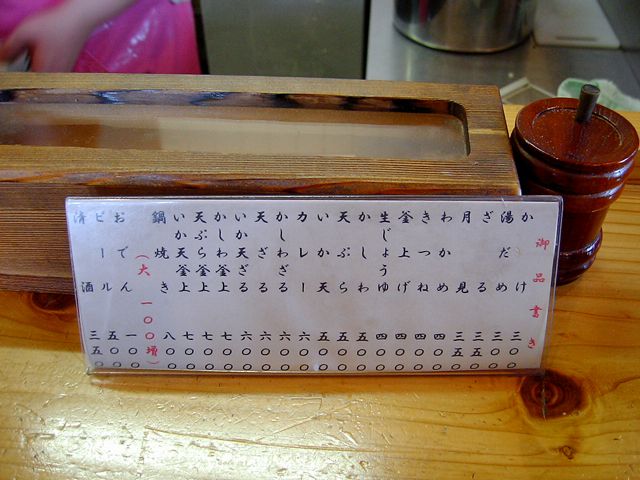 御品書き
かけ 三〇〇
湯だめ 三〇〇
ざる 三五〇
月見 三五〇
わかめ 四〇〇
きつね 四〇〇
釜上げ 四〇〇
生じょうゆ 四〇〇
かしわ 五〇〇
天ぷら 五〇〇
いか天 五〇〇
カレー 六〇〇
かしわざる 六〇〇
天ざる 六〇〇
いか天ざる 六〇〇
かしわ釜上 七〇〇
天ぷら釜上 七〇〇
いか天釜上 七〇〇
鍋焼き 八〇〇
(大 一〇〇増)
おでん 一〇〇
ビール 五〇〇
清酒 三五〇